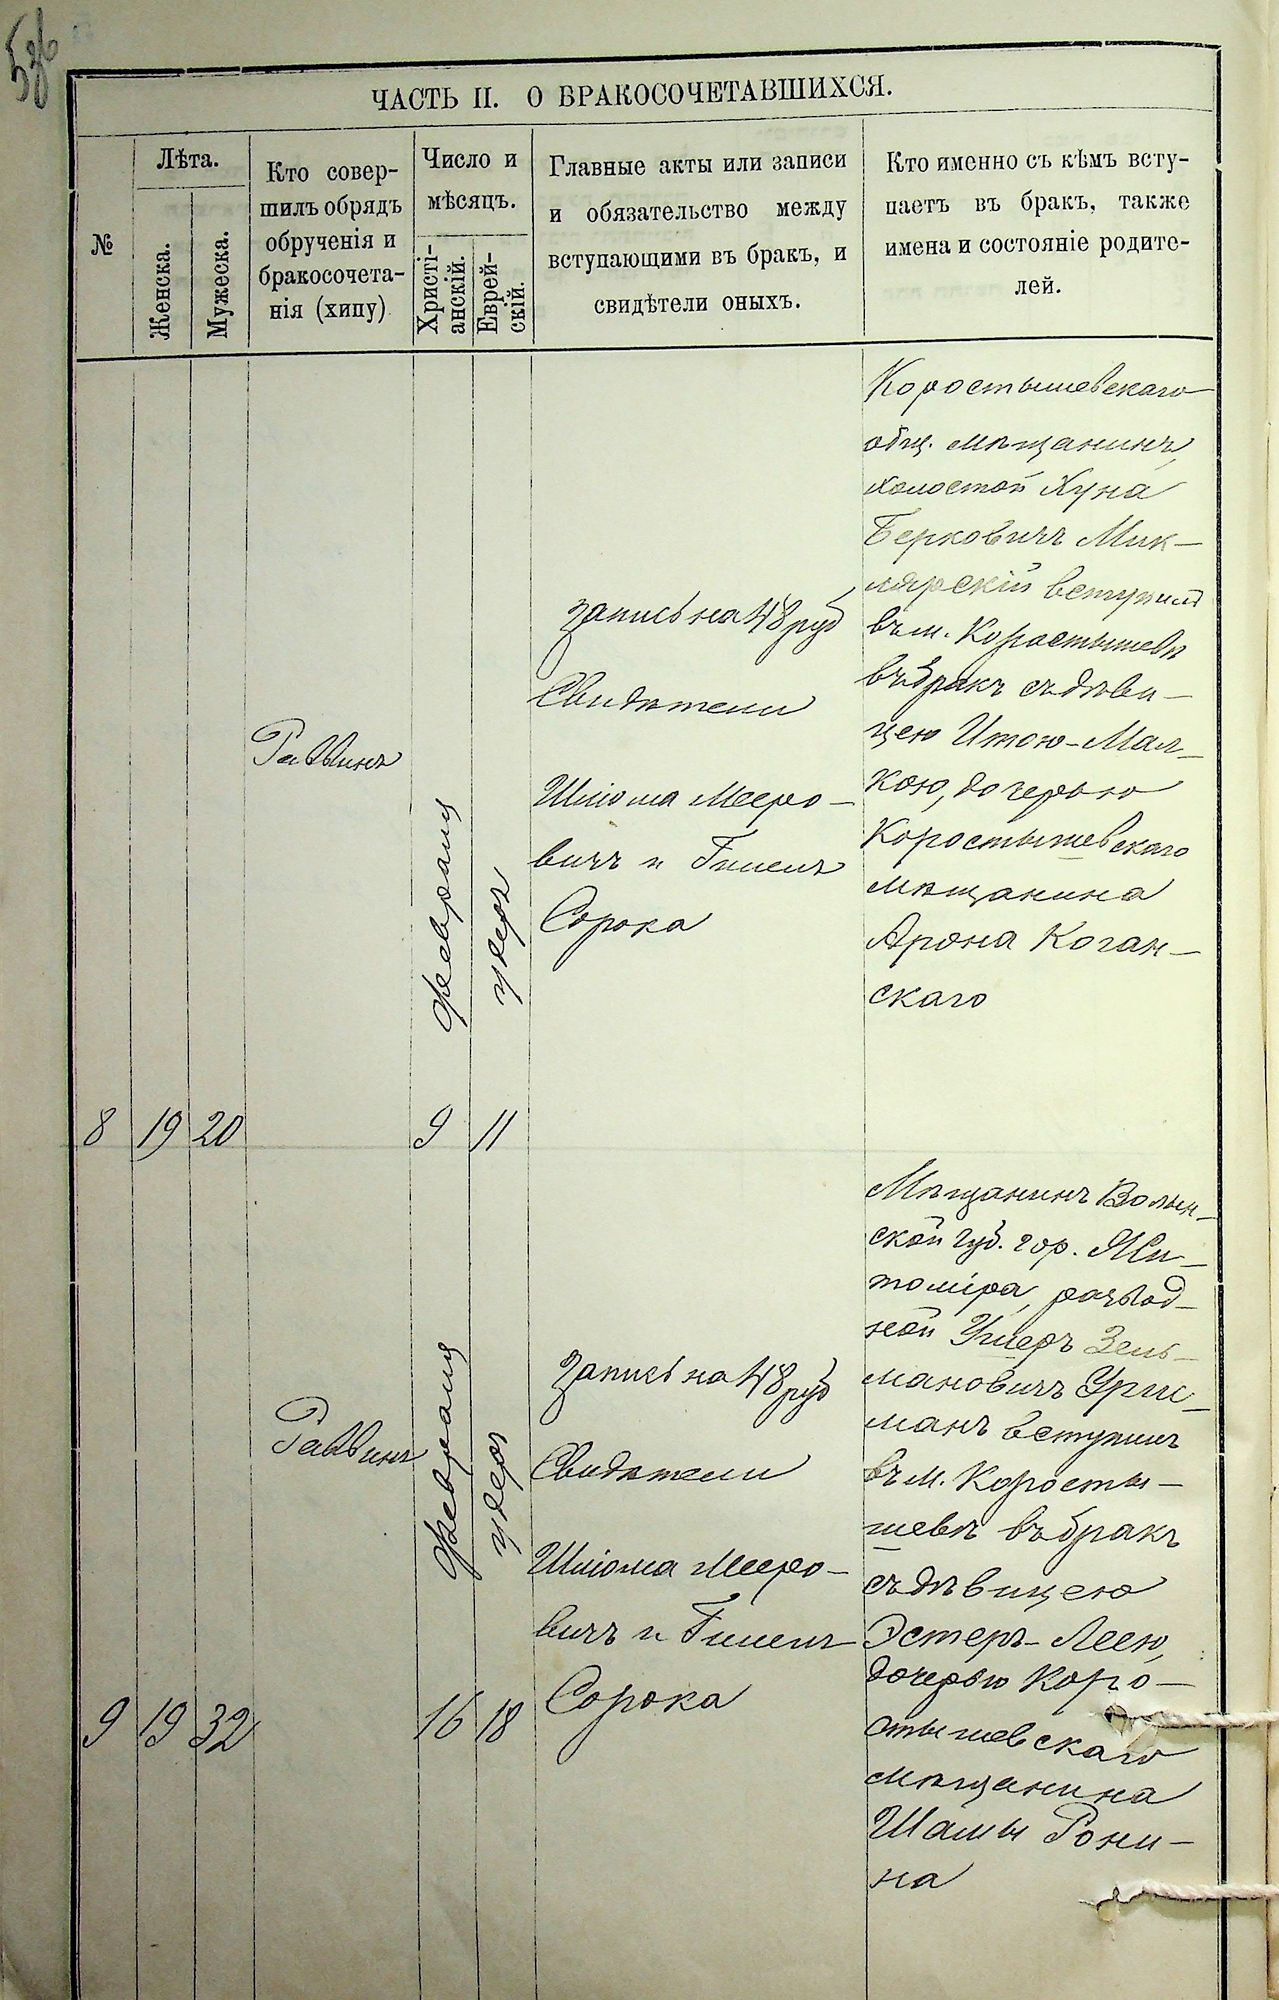 536
ЧАСТЬ II. О БРАКОСОЧЕТАВШИХСЯ.
№
Лѣта.
Женска.
Мужеска.
Кто совер-
шилъ обрядъ
обрученія и
бракосочета-
нія (хипу)
Число и
мѣсяцъ.
Христі-
анскій.
Еврей-
скій.
Главные акты или записи
и обязательство между
вступающими въ бракъ, и
свидѣтели оныхъ.
Кто именно съ кѣмъ всту-
паетъ въ бракъ, также
имена и состояніе родите-
лей.
8
19
20
Раввинъ
февраля
9
11
запись на 48 руб
Свидѣтели
Шліома Мееро-
вичъ и
Сорока
Коростышевскаго
общ. мѣщанинъ,
холостой Хуна
Берковичъ Мик-
лярскій вступилъ
въ м. Коростышевѣ
въ бракъ съ дѣви-
цею Итою-Мал-
кою, дочерью
Коростышевскаго
мѣщанина
Арона Коган-
скаго
9
19
32
Раввинъ
февраля
16
18
Запись на 48 руб
Свидѣтели
Шліома Мееро-
вичъ и
Сорока
Мѣщанинъ Волын-
ской губ. гор. Жи-
томіра, развод-
ной Ушеръ Зель-
мановичъ
манъ вступилъ
въ м. Коросты-
шевѣ въ бракъ
съ дѣвицею
Эстеръ-Леею,
дочерью Коро-
стышевскаго
мѣщанина
Шамы Рони-
на